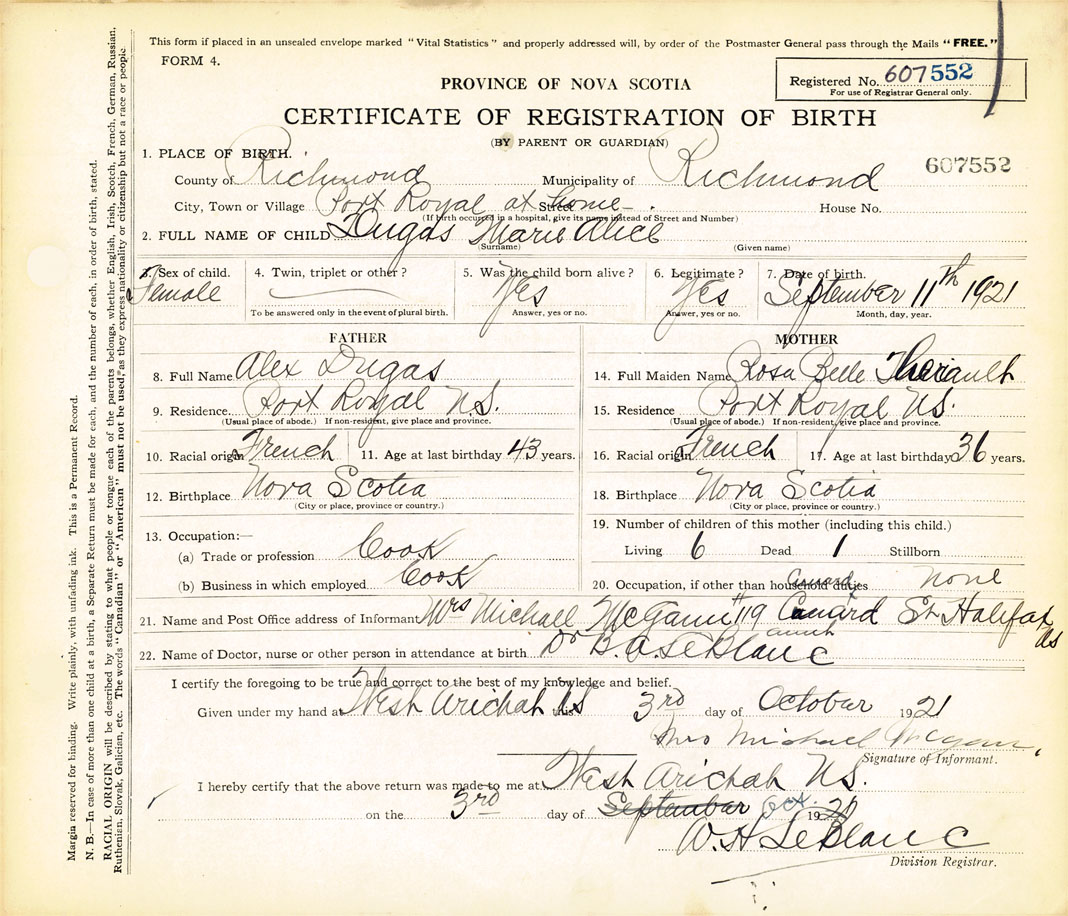 This form if placed in an unsealed envelope marked "Vital Statistics" and properly addressed will, by order of the Postmaster General pass through the Mails "FREE."
FORM 4.
Registered No. 607552
For use of Registrar General only.
PROVINCE OF NOVA SCOTIA
CERTIFICATE OF REGISTRATION OF BIRTH
(BY PARENT OR GUARDIAN)
607552
1. PLACE OF BIRTH.
County of Richmond Municipality of Richmond
City, Town or Village Port Royal at home Street House No.
(If birth occurred in a hospital, give its name instead of Street and Number)
2. FULL NAME OF CHILD Dugas Marie Alice
(Surname) (Given name)
3. Sex of child. 4. Twin, triplet or other? 5. Was the child born alive? 6. Legitimate? 7. Date of birth.
Female Yes Yes September 11th 1921
To be answered only in the event of plural birth. Answer, yes or no. Answer, yes or no. Month, day, year.
FATHER MOTHER
8. Full Name Alex Dugas 14. Full Maiden Name Rosa Belle Theriault
9. Residence Port Royal N.S. 15. Residence Port Royal N.S.
(Usual place of abode.) If non-resident, give place and province. (Usual place of abode.) If non-resident, give place and province.
10. Racial origin French 11. Age at last birthday 43 years. 16. Racial origin French 17. Age at last birthday 36 years.
12. Birthplace Nova Scotia 18. Birthplace Nova Scotia
(City or place, province or country.) (City or place, province or country.)
13. Occupation:— 19. Number of children of this mother (including this child.)
(a) Trade or profession Cook Living 6 Dead 1 Stillborn
(b) Business in which employed Cook 20. Occupation, if other than household duties None
Cunard
21. Name and Post Office address of Informant Mrs Michael McGann #119 Cunard St Halifax NS
22. Name of Doctor, nurse or other person in attendance at birth Dr B. A. LeBlanc
I certify the foregoing to be true and correct to the best of my knowledge and belief.
Given under my hand at West Arichat NS this 3rd day of October 1921
Mrs Michael McGann
Signature of Informant.
I hereby certify that the above return was made to me at West Arichat N.S.
on the 3rd day of September Oct. 1920
W. H. LeBlanc
Division Registrar.
Margin reserved for binding. Write plainly, with unfading ink. This is a Permanent Record.
N. B.—In case of more than one child at a birth, a Separate Return must be made for each, and the number of each, in order of birth, stated.
RACIAL ORIGIN will be described by stating to what people or tongue each of the parents belongs, whether English, Irish, Scotch, French, German, Russian,
Ruthenian, Slovak, Galician, etc. The words "Canadian" or "American" must not be used, as they express nationality or citizenship but not a race or people